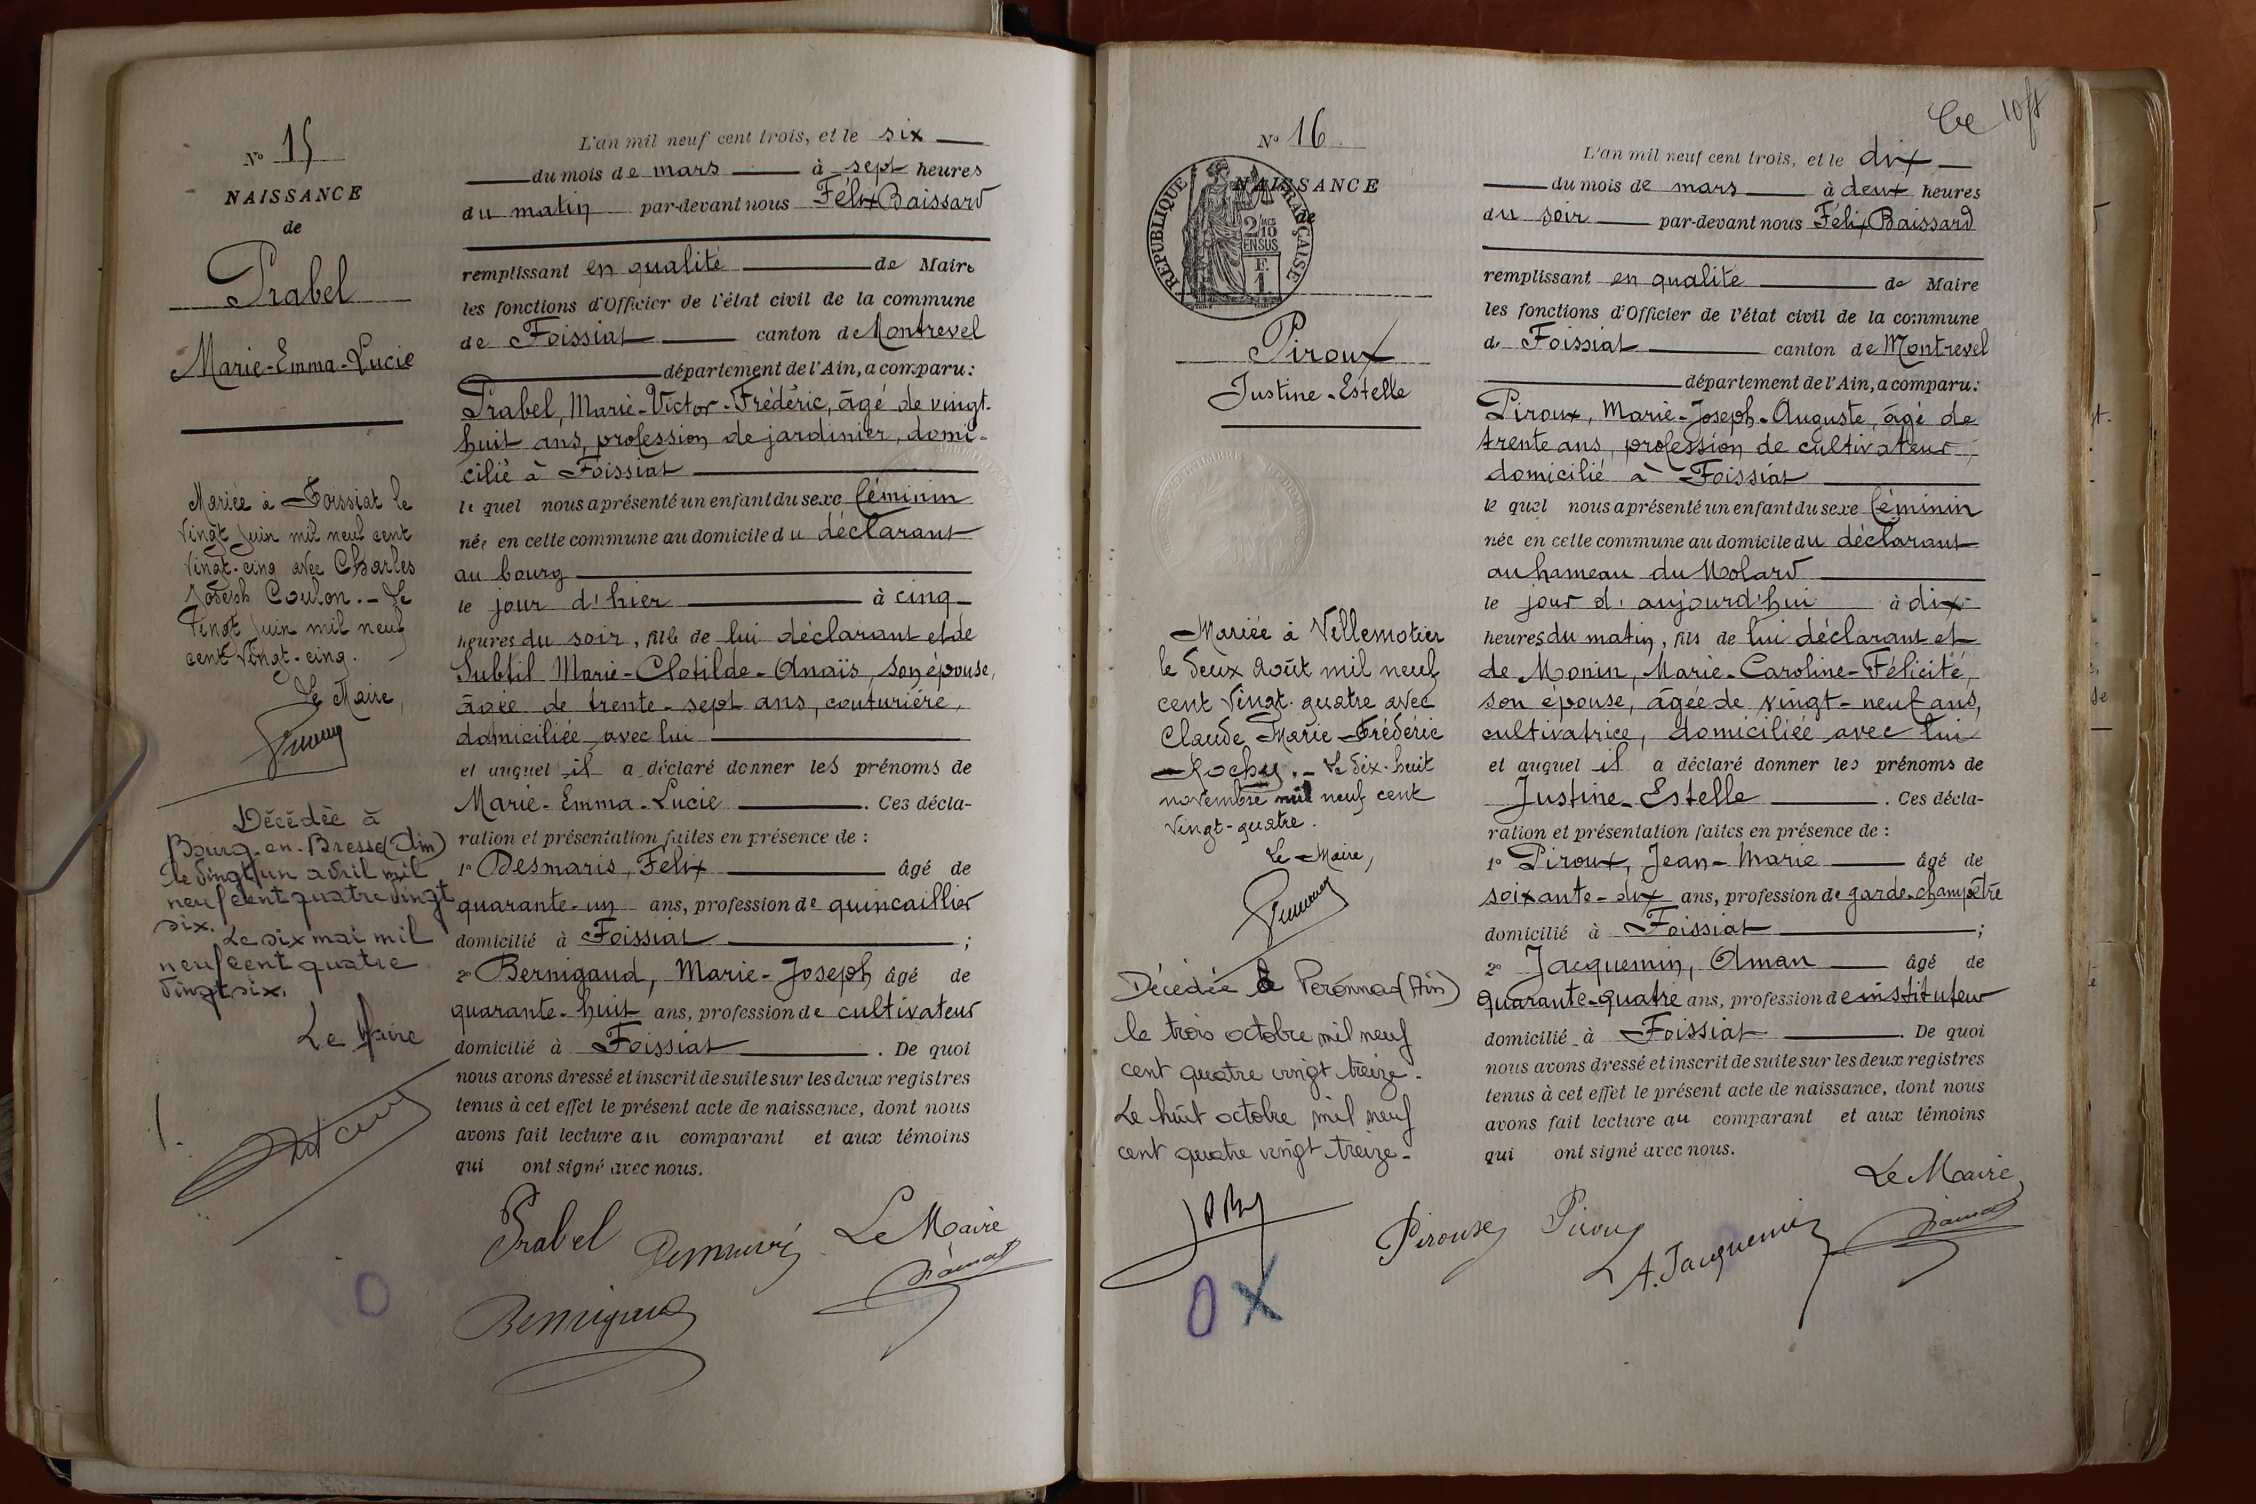 N° 15
NAISSANCE
de
Prabel
Marie-Emma-Lucie
Mariée à Foissiat le
vingt Juin mil neuf cent
vingt-cinq avec Charles
Joseph Coulon. - Le
vingt Juin mil neuf
cent vingt-cinq.
Le Maire,
Décédée à
Bourg-en-Bresse (Ain)
le vingt un avril mil
neuf cent quatre vingt
six.
Le six mai mil
neuf cent quatre
vingt six.
Le Maire
L'an mil neuf cent trois, et le six
du mois de mars à sept heures
du matin par-devant nous Félix Baissard
remplissant en qualité de Maire
les fonctions d'Officier de l'état civil de la commune
de Foissiat canton de Montrevel
département de l'Ain, a comparu:
Prabel, Marie-Victor-Frédéric, âgé de vingt-
huit ans, profession de jardinier, domi-
cilié à Foissiat
le quel nous a présenté un enfant du sexe féminin
née en cette commune au domicile du déclarant
au bourg
le jour d'hier à cinq
heures du soir, fille de lui déclarant et de
Subtil Marie-Clotilde-Anaïs, son épouse,
âgée de trente-sept ans, couturière,
domiciliée avec lui
et auquel il a déclaré donner les prénoms de
Marie-Emma-Lucie. Ces décla-
ration et présentation faites en présence de:
1° Desmaris, Félix âgé de
quarante-un ans, profession de quincaillier
domicilié à Foissiat;
2° Bernigaud, Marie-Joseph âgé de
quarante-huit ans, profession de cultivateur
domicilié à Foissiat. De quoi
nous avons dressé et inscrit de suite sur les deux registres
tenus à cet effet le présent acte de naissance, dont nous
avons fait lecture au comparant et aux témoins
qui ont signé avec nous.
Prabel Desmaris Le Maire
Bernigaud
N° 16
NAISSANCE
de
RÉPUBLIQUE FRANÇAISE
2/10
EN SUS
F.
1
Piroux
Justine-Estelle
Mariée à Villemotier
le deux Août mil neuf
cent vingt-quatre avec
Claude Marie Frédéric
Rochy. - Le dix-huit
novembre mil neuf cent
vingt-quatre.
Le Maire,
Décédée à Péronnas (Ain)
le trois octobre mil neuf
cent quatre vingt treize.
Le huit octobre mil neuf
cent quatre vingt treize.
L'an mil neuf cent trois, et le dix
du mois de mars à deux heures
du soir par-devant nous Félix Baissard
remplissant en qualité de Maire
les fonctions d'Officier de l'état civil de la commune
de Foissiat canton de Montrevel
département de l'Ain, a comparu:
Piroux, Marie-Joseph-Auguste, âgé de
trente ans, profession de cultivateur,
domicilié à Foissiat
le quel nous a présenté un enfant du sexe féminin
née en cette commune au domicile du déclarant
au hameau du Molard
le jour d'aujourd'hui à dix
heures du matin, fils de lui déclarant et
de Monin, Marie-Caroline-Félicité,
son épouse, âgée de vingt-neuf ans,
cultivatrice, domiciliée avec lui
et auquel il a déclaré donner les prénoms de
Justine-Estelle. Ces décla-
ration et présentation faites en présence de:
1° Piroux, Jean-Marie âgé de
soixante-dix ans, profession de garde-champêtre
domicilié à Foissiat;
2° Jacquemin, Aman âgé de
quarante-quatre ans, profession de instituteur
domicilié à Foissiat. De quoi
nous avons dressé et inscrit de suite sur les deux registres
tenus à cet effet le présent acte de naissance, dont nous
avons fait lecture au comparant et aux témoins
qui ont signé avec nous.
Le Maire,
Piroux Piroux A. Jacquemin